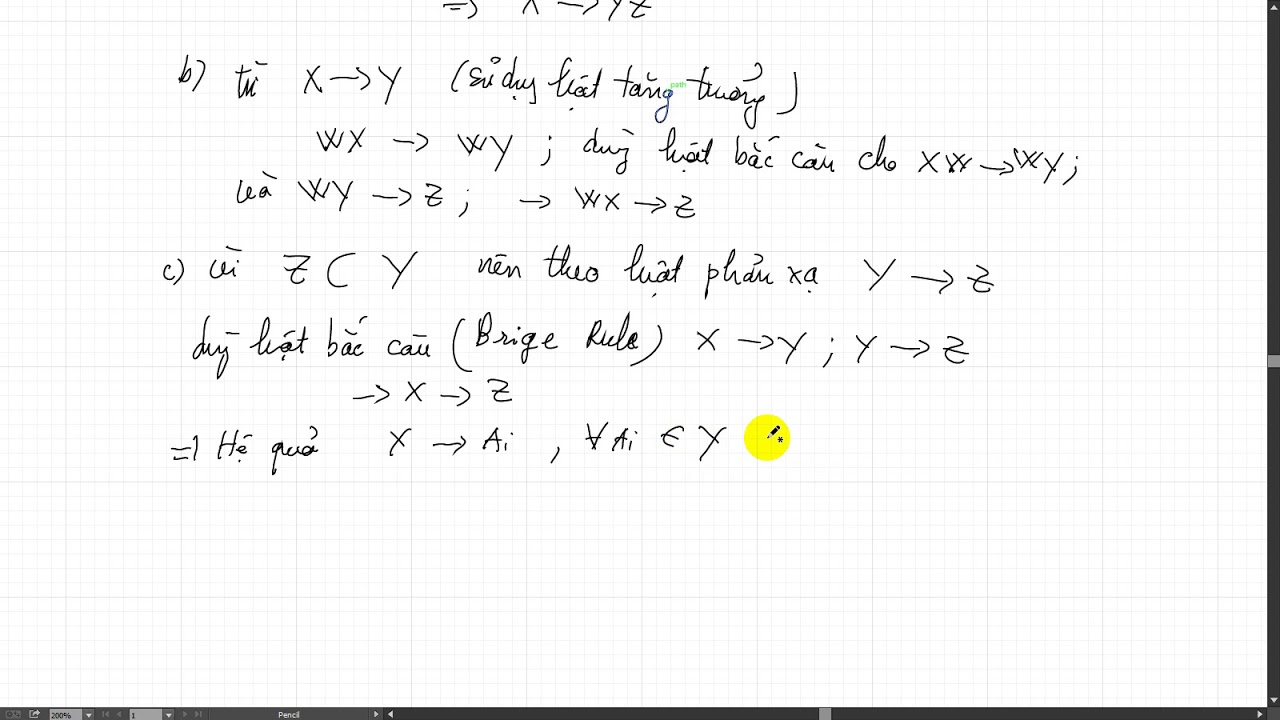 => X → YZ
b) từ X → Y (sử dụng luật tăng trưởng)
path
WX → WY ; dùng luật bắc cầu cho XW → WY ;
và WY → Z ; → WX → Z
c) vì Z ⊂ Y nên theo luật phản xạ Y → Z
dùng luật bắc cầu (Brige Rule) X → Y ; Y → Z
→ X → Z
=> Hệ quả X → Ai , ∀Ai ∈ Y
200% 1 Pencil